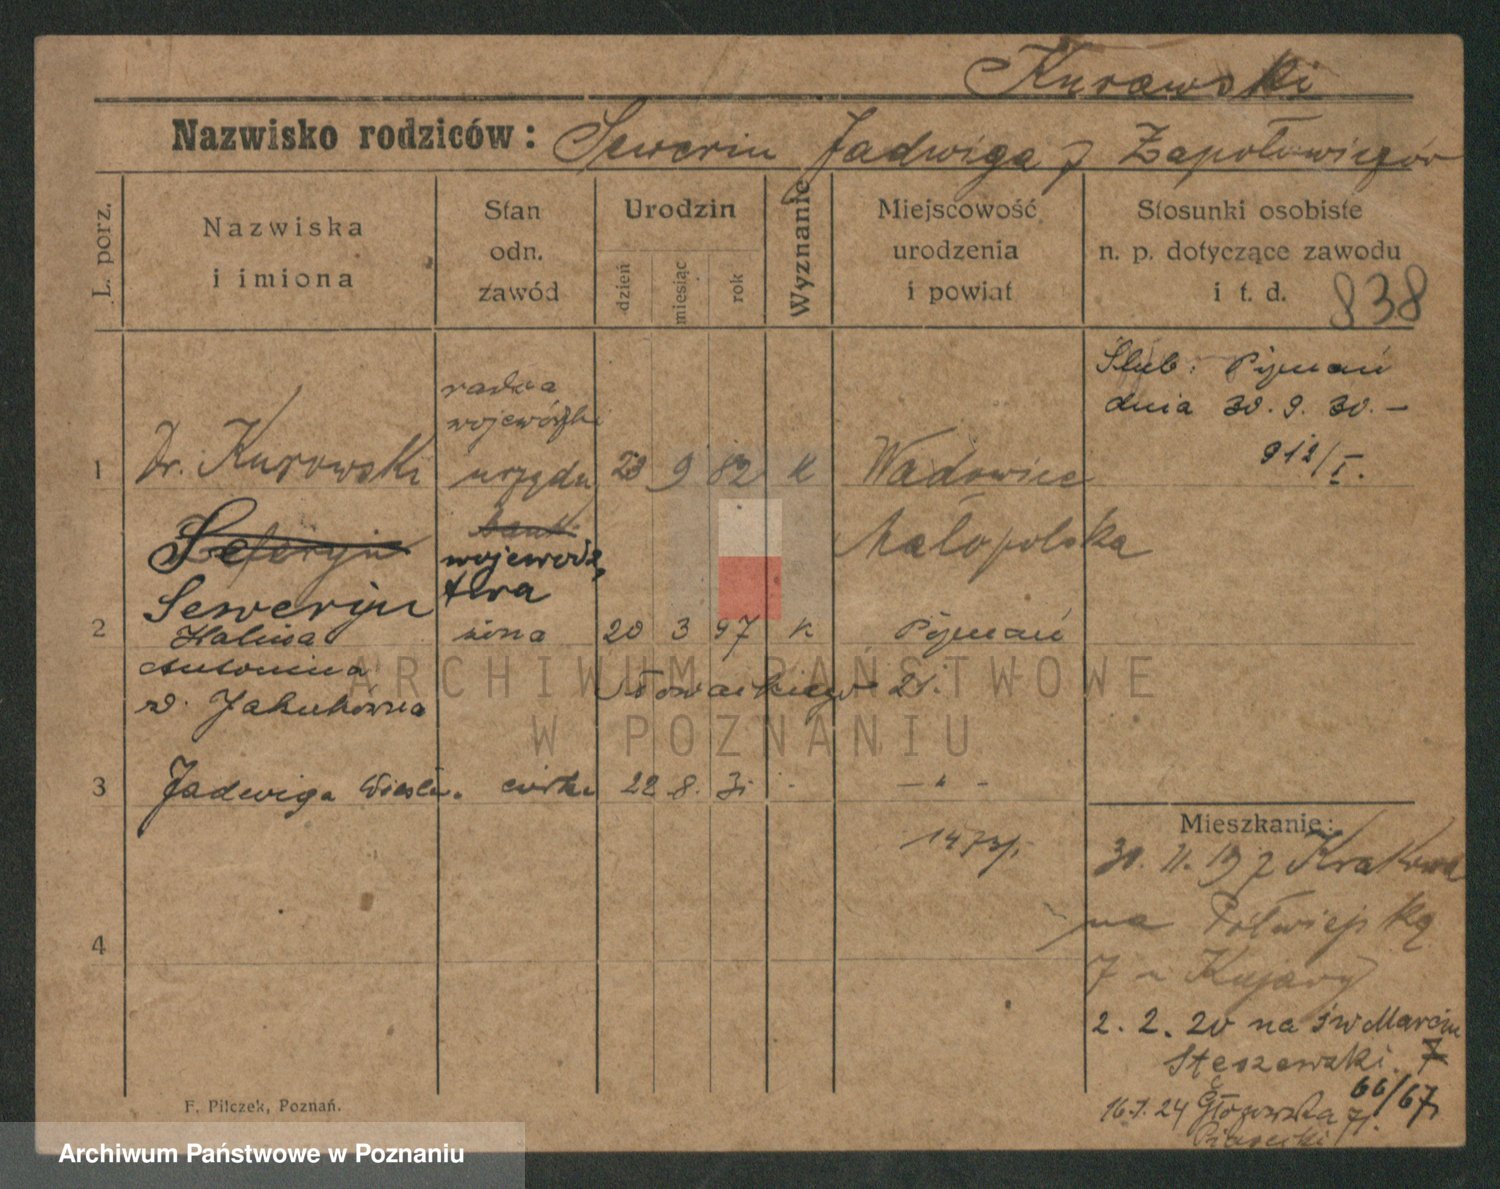 Kurowski
Nazwisko rodziców: Seweryn Jadwiga z Zapołowiczów
L. porz.
Nazwiska
i imiona
Stan
odn.
zawód
Urodzin
dzień
miesiąc
rok
Wyznanie
Miejscowość
urodzenia
i powiat
Stosunki osobiste
n. p. dotyczące zawodu
i t. d.
838
Ślub: Poznań
dnia 30. 9. 30. —
912/I.
1 Dr. Kurowski
radca
wojewódzki
urzędu 23 9 82 K Wadowice
Małopolska
Seweryn
wojewódz
twa
2 Halina żona 20 3 97 K Poznań
Antonina
Słowackiego 21.
3 Jadwiga Wiesła. córka 22 8. 31 - — " -
1473/I
4
Mieszkanie:
30. 11. 19 z Krakowa
na Półwiejską
7 u Kujawy
2. 2. 20 na św Marcin
Stęszewski. 66/67
16.1.24 Głogowska
F. Pilczek, Poznań.
ARCHIWUM PAŃSTWOWE
W POZNANIU
Archiwum Państwowe w Poznaniu